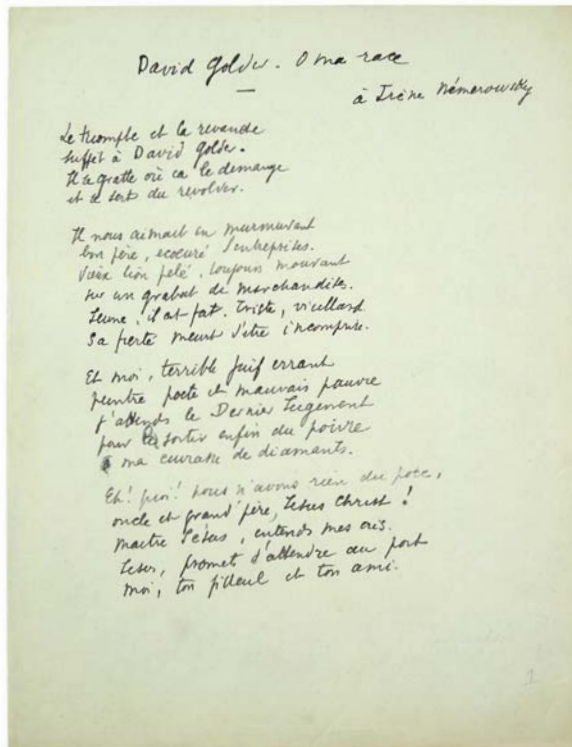 David Golder. O ma race
à Irène Némerowsky
Le triomphe et la revanche
suffit à David Golder.
Il se gratte où ça le démange
et se sert du revolver.
Il nous aimait en murmurant
bon père, ecoeuré d'entreprises.
Vieux lion pelé, toujours mourant
sur un grabat de marchandises.
Jeune, il est fat. Triste, vieillard
Sa fierté meurt d'être incomprise.
Et moi, terrible Juif errant
peintre poete et mauvais pauvre
j'attends le Dernier Jugement
pour sortir enfin du poivre
ma cuirasse de diamants.
Eh! quoi! nous n'avons rien du porc,
oncle et grand'père, Jésus Christ!
maitre Jésus, entends mes cris.
Jésus, promets d'attendre au port
moi, ton filleul et ton ami.
1